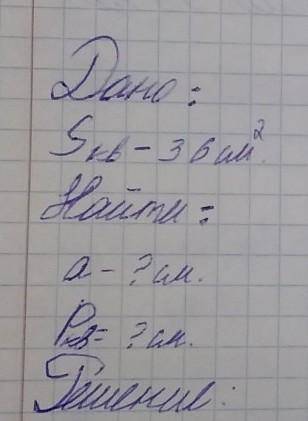 Дано:
Sкв - 36 см².
Найти:
a - ? см.
Pкв = ? см.
Решение: